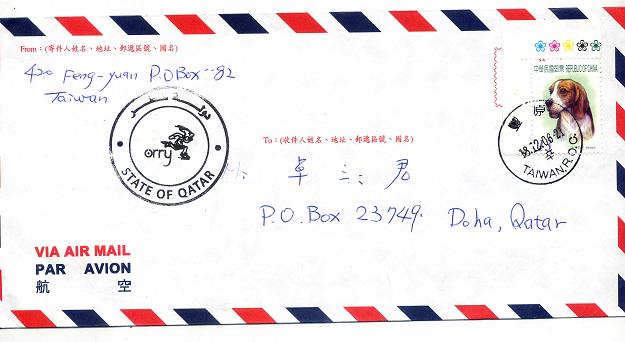 From：(寄件人姓名、地址、郵遞區號、國名)
420 Feng-yuan P.O Box -- 82
Taiwan
دولة قطر
orry
STATE OF QATAR
中華民國郵票 REPUBLIC OF CHINA
豐原
18.12.06-21
TAIWAN.R.O.C.
To：(收件人姓名、地址、郵遞區號、國名)
卓三君
P.O. Box 23749. Doha, Qatar
VIA AIR MAIL
PAR AVION
航空